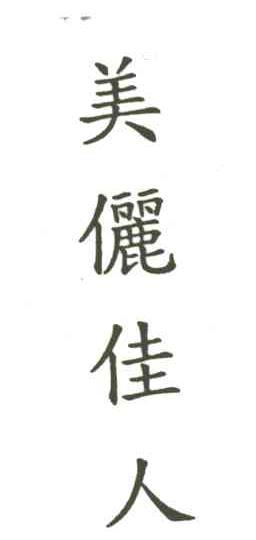 美儷佳人